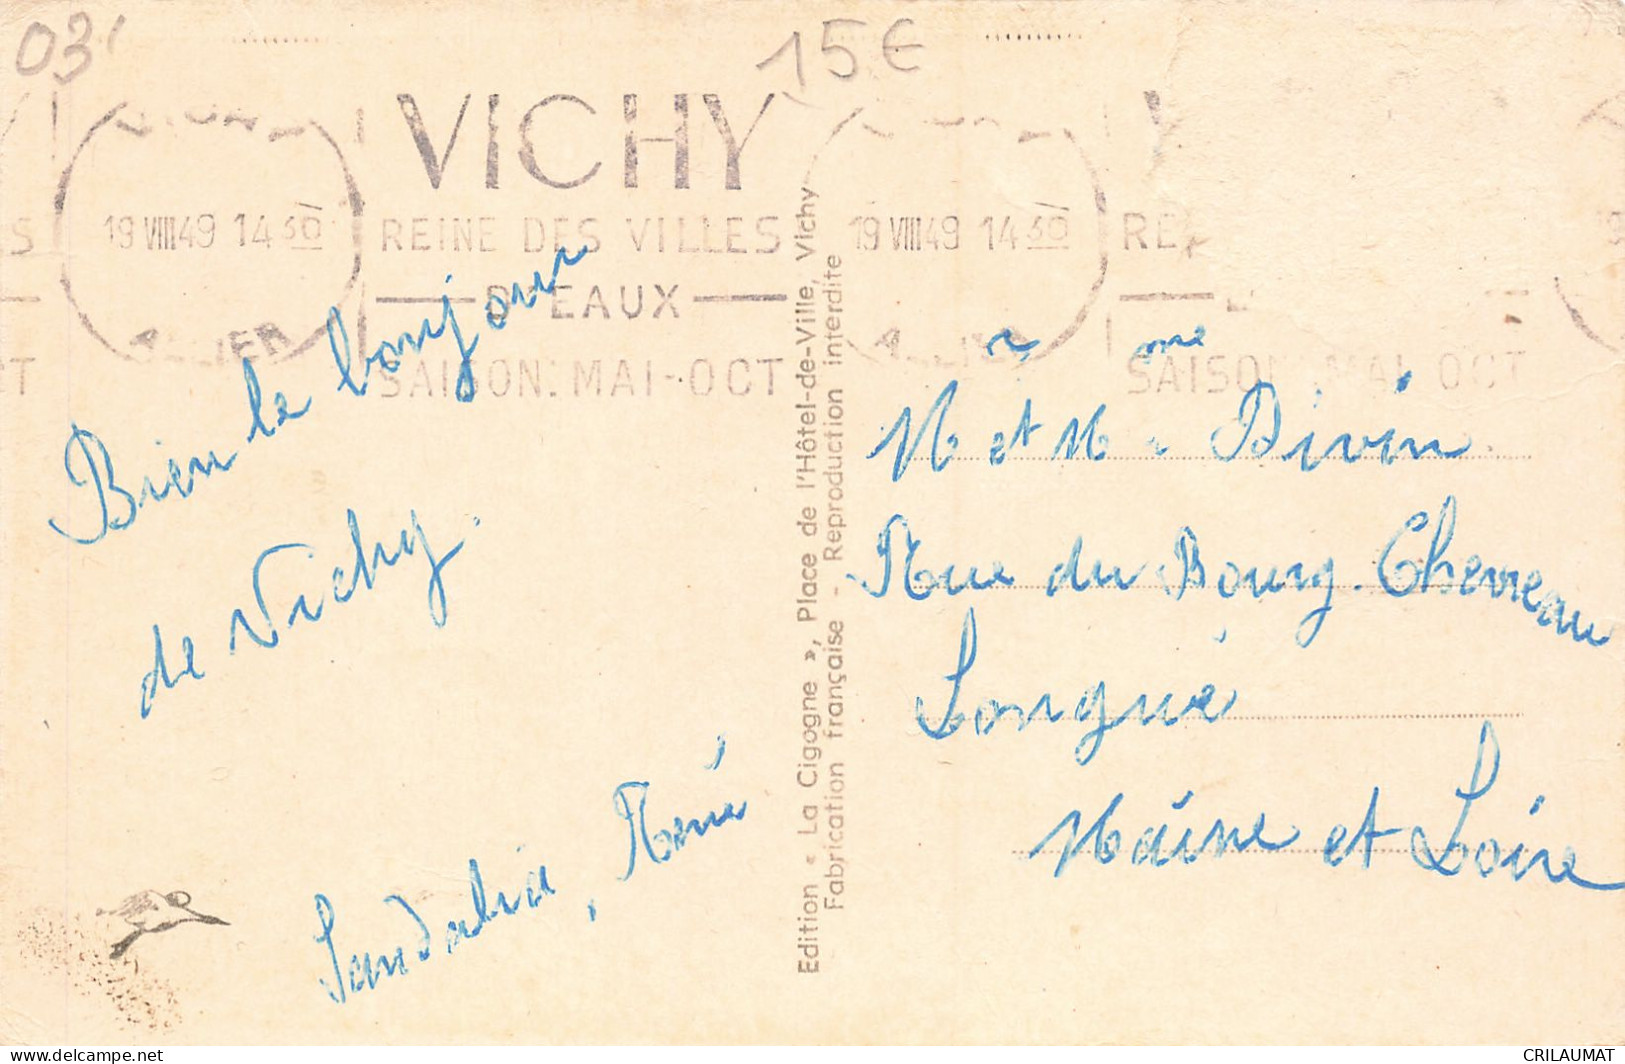 03
15€
VICHY
19 VIII 49 14 30
REINE DES VILLES
D'EAUX
SAISON: MAI-OCT
ALLIER
19 VIII 49 14 30
SAISON: MAI-OCT
Bien le bonjour
de Vichy.
René
Edition « La Cigogne », Place de l'Hôtel-de-Ville, Vichy
Fabrication française - Reproduction interdite
Mr et Mme Divin
Rue du Bourg-Chevreau
Longué
Maine et Loire
delcampe.net
CRILAUMAT